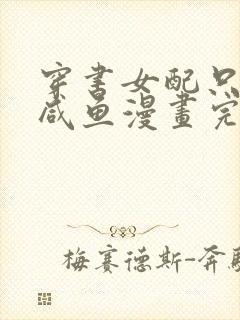 穿书女配只
咸鱼漫畫完
梅赛德斯-奔馳